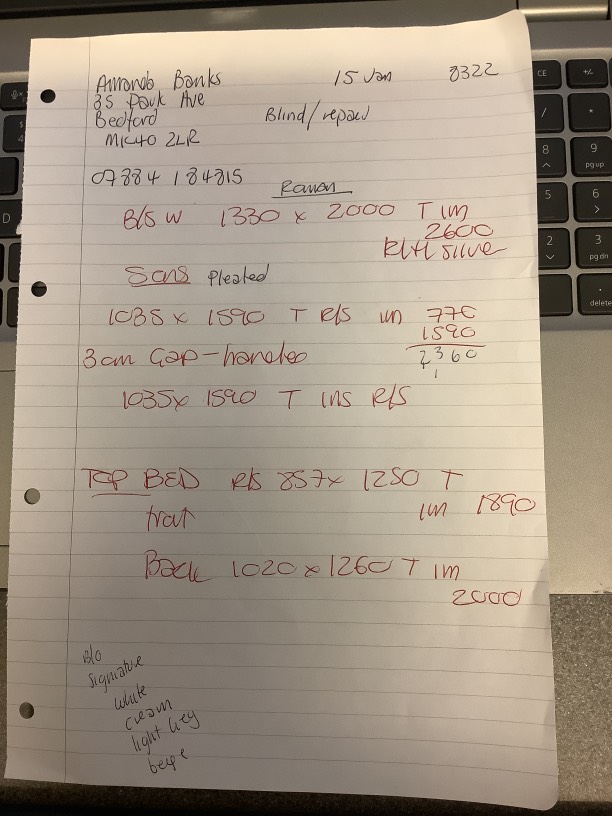 Amanda Banks 15 Jan 8322
35 Park Ave
Bedford Blind/repair
MK40 2LR
07884 184815
B/S W 1330 x 2000 T Im
2600
silver
Sons Pleated
1035 x 1590 T R/S im 770
1590
3cm Gap-handles 2360
1
1035x 1590 T ins R/S
TOP BED R/S 857x 1250 T
Im 1890
Back 1020 x 1260 T Im
2000
B/O
Signiature
white
cream
light grey
beige
CE +/-
/ *
8 9
pg up
5 6
D
2 3
pg dn
delete